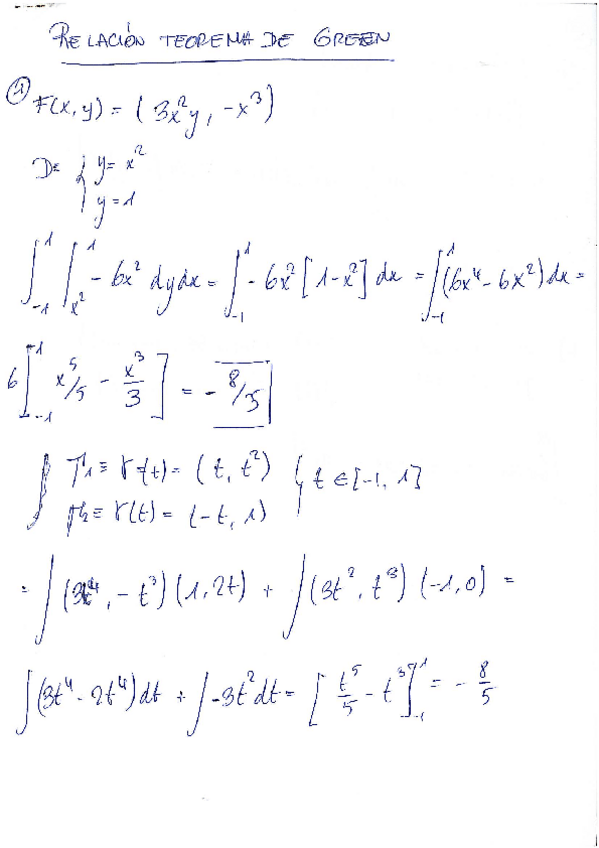 RELACIÓN TEOREMA DE GREEN
① F(x,y) = (3x²y, -x³)
D ≡ { y = x²
y = 1
∫₋₁¹ ∫ₓ²¹ - 6x² dy dx = ∫₋₁¹ - 6x² [1-x²] dx = ∫₋₁¹ (6x⁴ - 6x²) dx =
6 [₋₁¹ x⁵/5 - x³/3 ] = - 8/5
∫ Γ₁ ≡ γ(t) = (t, t²) } t ∈ [-1, 1]
Γ₂ ≡ γ(t) = (-t, 1)
= ∫ (3t⁴, -t³) (1, 2t) + ∫ (3t², t³) (-1, 0) =
∫ (3t⁴ - 2t⁴) dt + ∫ -3t² dt = [ t⁵/5 - t³ ]₋₁¹ = - 8/5